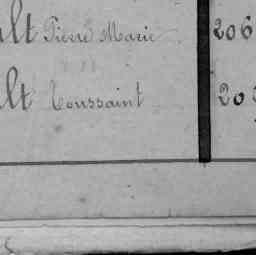 ult Pierre Marie 206
ult Toussaint 20